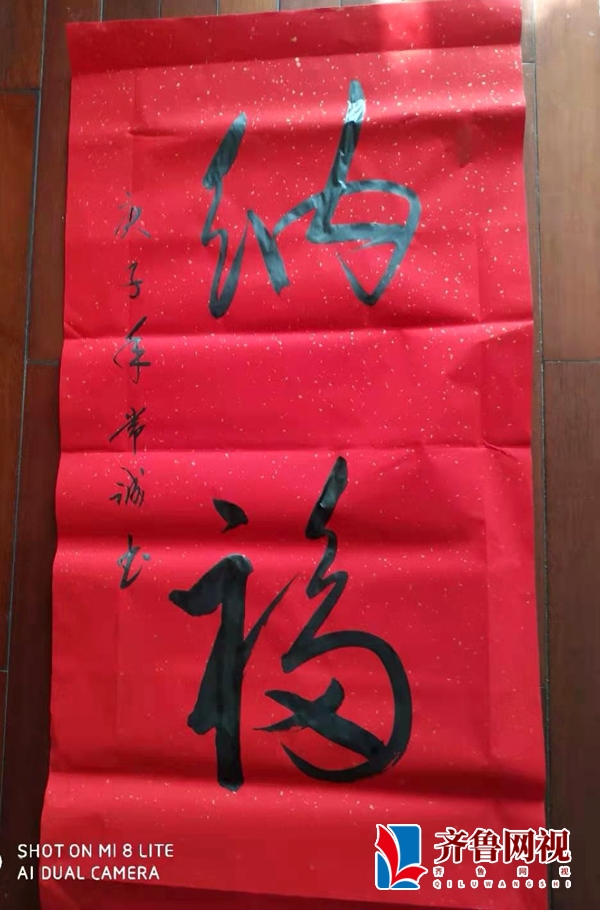 纳
福
庚子年常诚书
SHOT ON MI 8 LITE
AI DUAL CAMERA
齐鲁网视
齐鲁网视
QILUWANGSHI